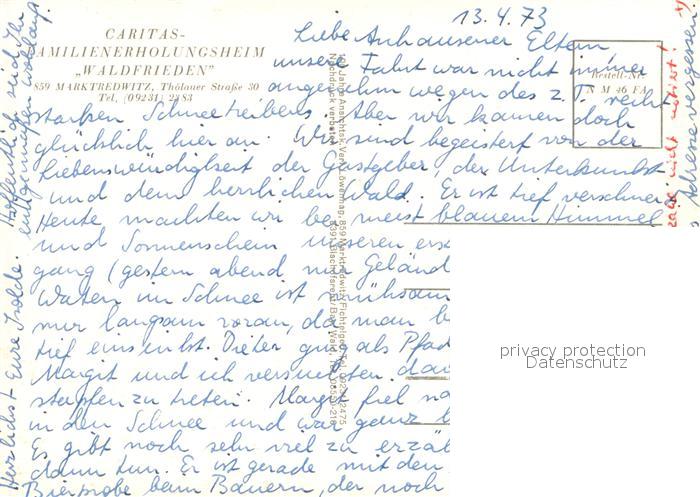 CARITAS-
FAMILIENERHOLUNGSHEIM
„WALDFRIEDEN”
859 MARKTREDWITZ, Thölauer Straße 30
Tel. (09231) 2183
13.4.73
Liebe Anhausener Eltern
unsere Fahrt war nicht immer
angenehm wegen des z. T. recht
starken Schneetreibens. Aber wir kamen doch
glücklich hier an. Wir sind begeistert von der
Liebenswürdigkeit der Gastgeber, der Unterkunft
und dem herrlichen Wald. Er ist tief verschneit
Heute machten wir bei meist blauem Himmel
und Sonnenschein unseren ers
gang (gestern abend nur Geländ
Waten im Schnee ist mühsam
nur langsam voran, da man be
tief einsinkt. Dieter ging als Pfad
Margit und ich versuchten
stapfen zu treten. Margit fiel
in den Schnee und war ganz
Es gibt noch sehr viel zu erzäh
dann tun. Er ist gerade mit den
Bierprobe beim Bauern, der noch
Herzlichst Eure Isolde.
Hoffentlich seid Ihr
Bestell-Nr.
N M 46 FA
Jahre Ansichtsk.-Verl. Löwenhag, 859 Marktredwitz/Fichtelgeb., Tel. 09231/2475
Nachdruck verboten
nicht notiert!
Adresse vergessen
privacy protection
Datenschutz